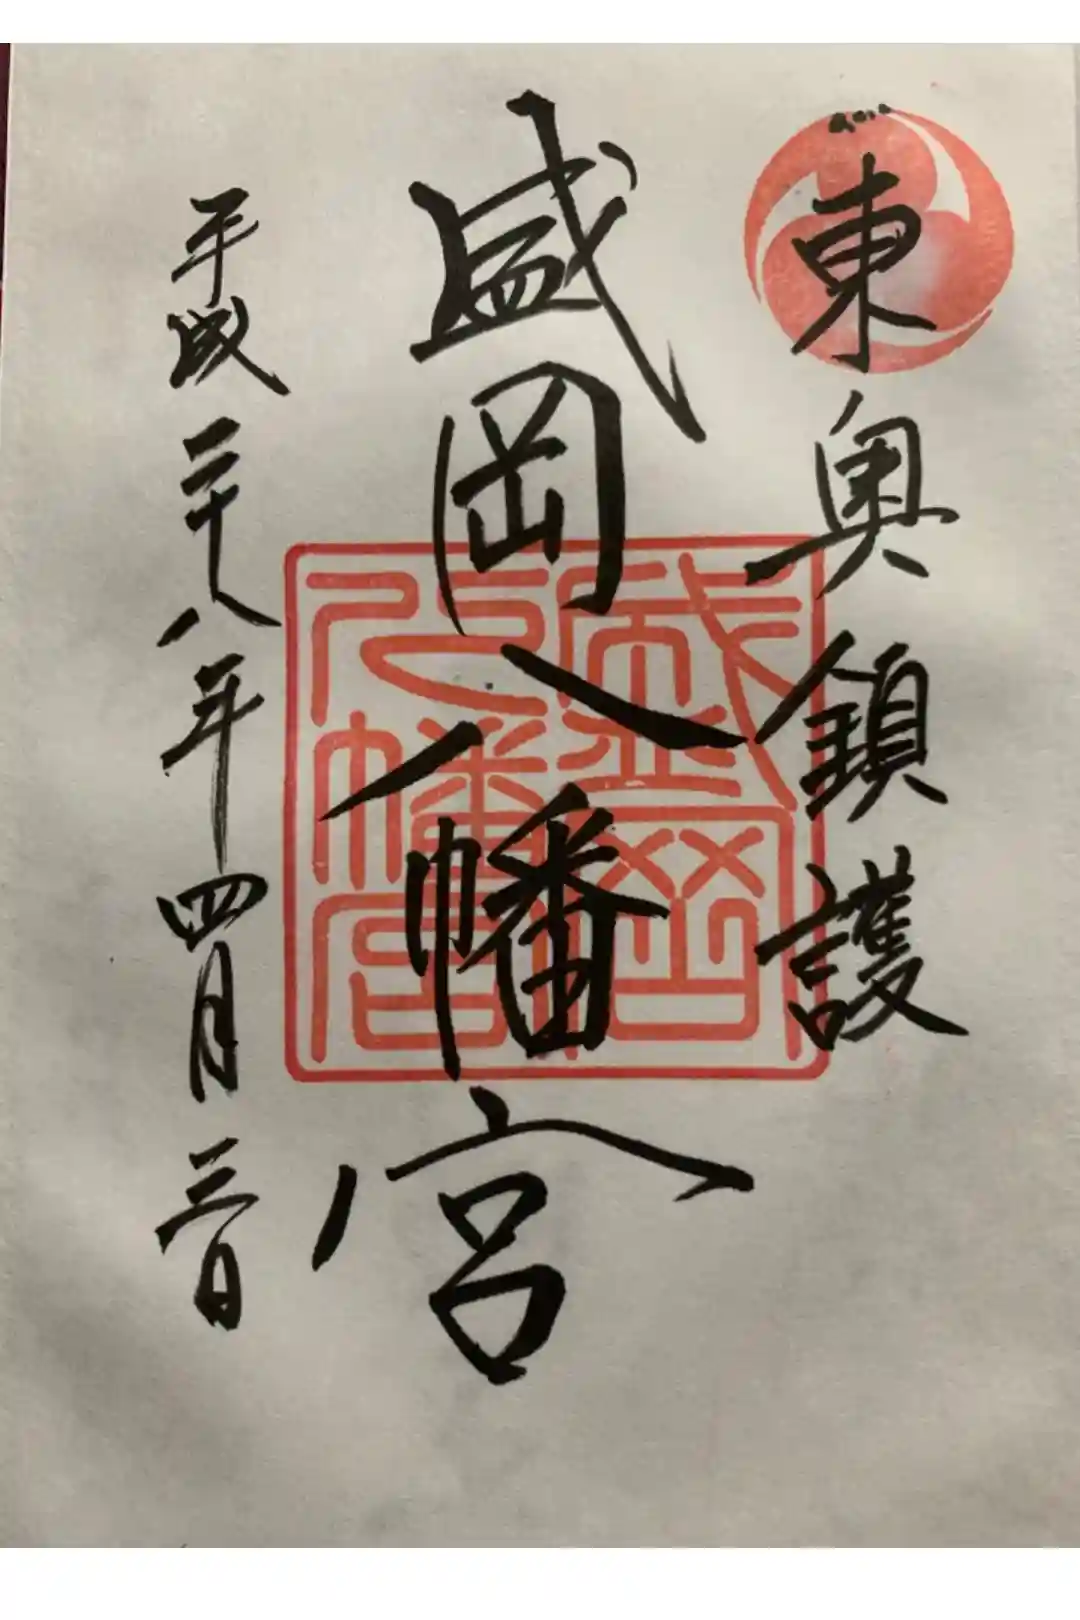 東奥鎮護
盛岡八幡宮
平成二十八年四月三日
盛岡八幡宮